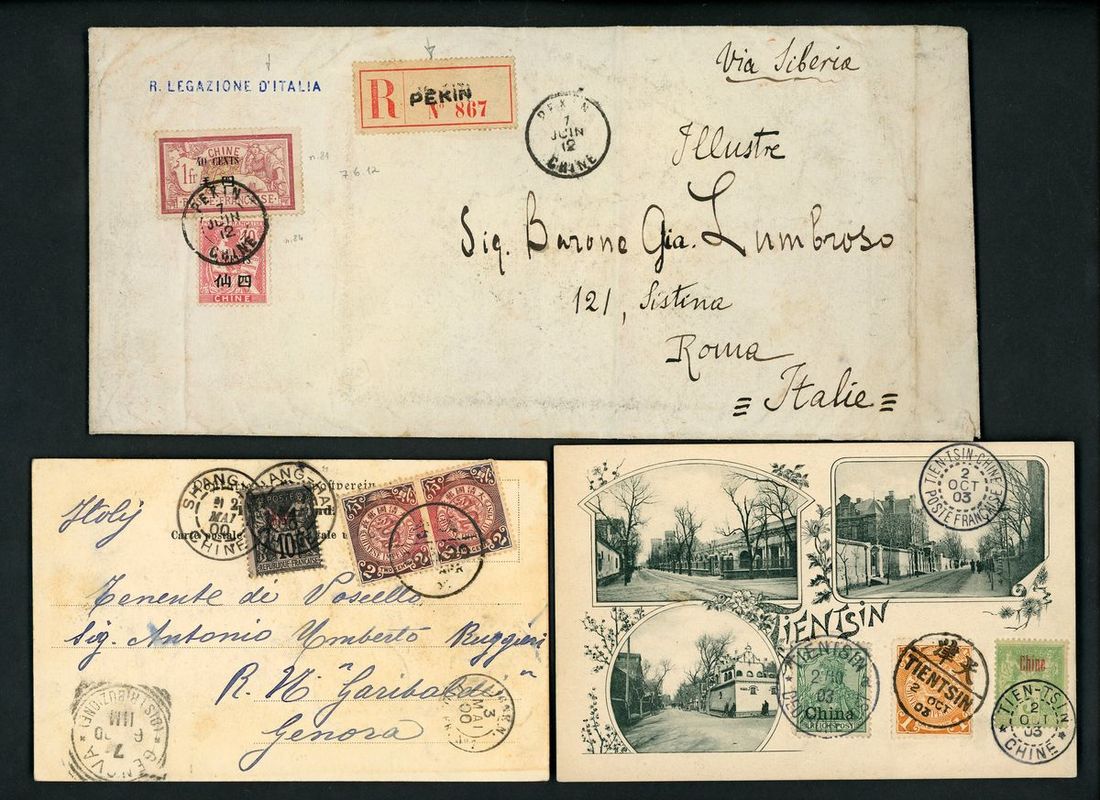 R. LEGAZIONE D'ITALIA
R
PEKIN
N° 867
PEKIN
7
JUIN
12
CHINE
Via Siberia
Illustre
Sig. Barone Gia. Lumbroso
121, Sistina
Roma
Italie
CHINE
40 CENTS
1fr
n.81
7.6.12
PEKIN
7
JUIN
12
CHINE
n.84
仙四
CHINE
Italy
SHANG
2
MAI
00
CHINE
Carte postale
POSTE
10
REPUBLIQUE FRANÇAISE
2
2
2
Tenente di Vascello
Sig. Antonio Umberto Ruggieri
R. N. "Garibaldi"
Genova
GENOVA
7
3
00
TIEN-TSIN-CHINE
2
OCT
03
POSTE FRANÇAISE
TIENTSIN
TIENTSIN
03
China
津天
TIENTSIN
2 OCT
03
1
Chine
TIEN-TSIN
2
OCT
03
CHINE